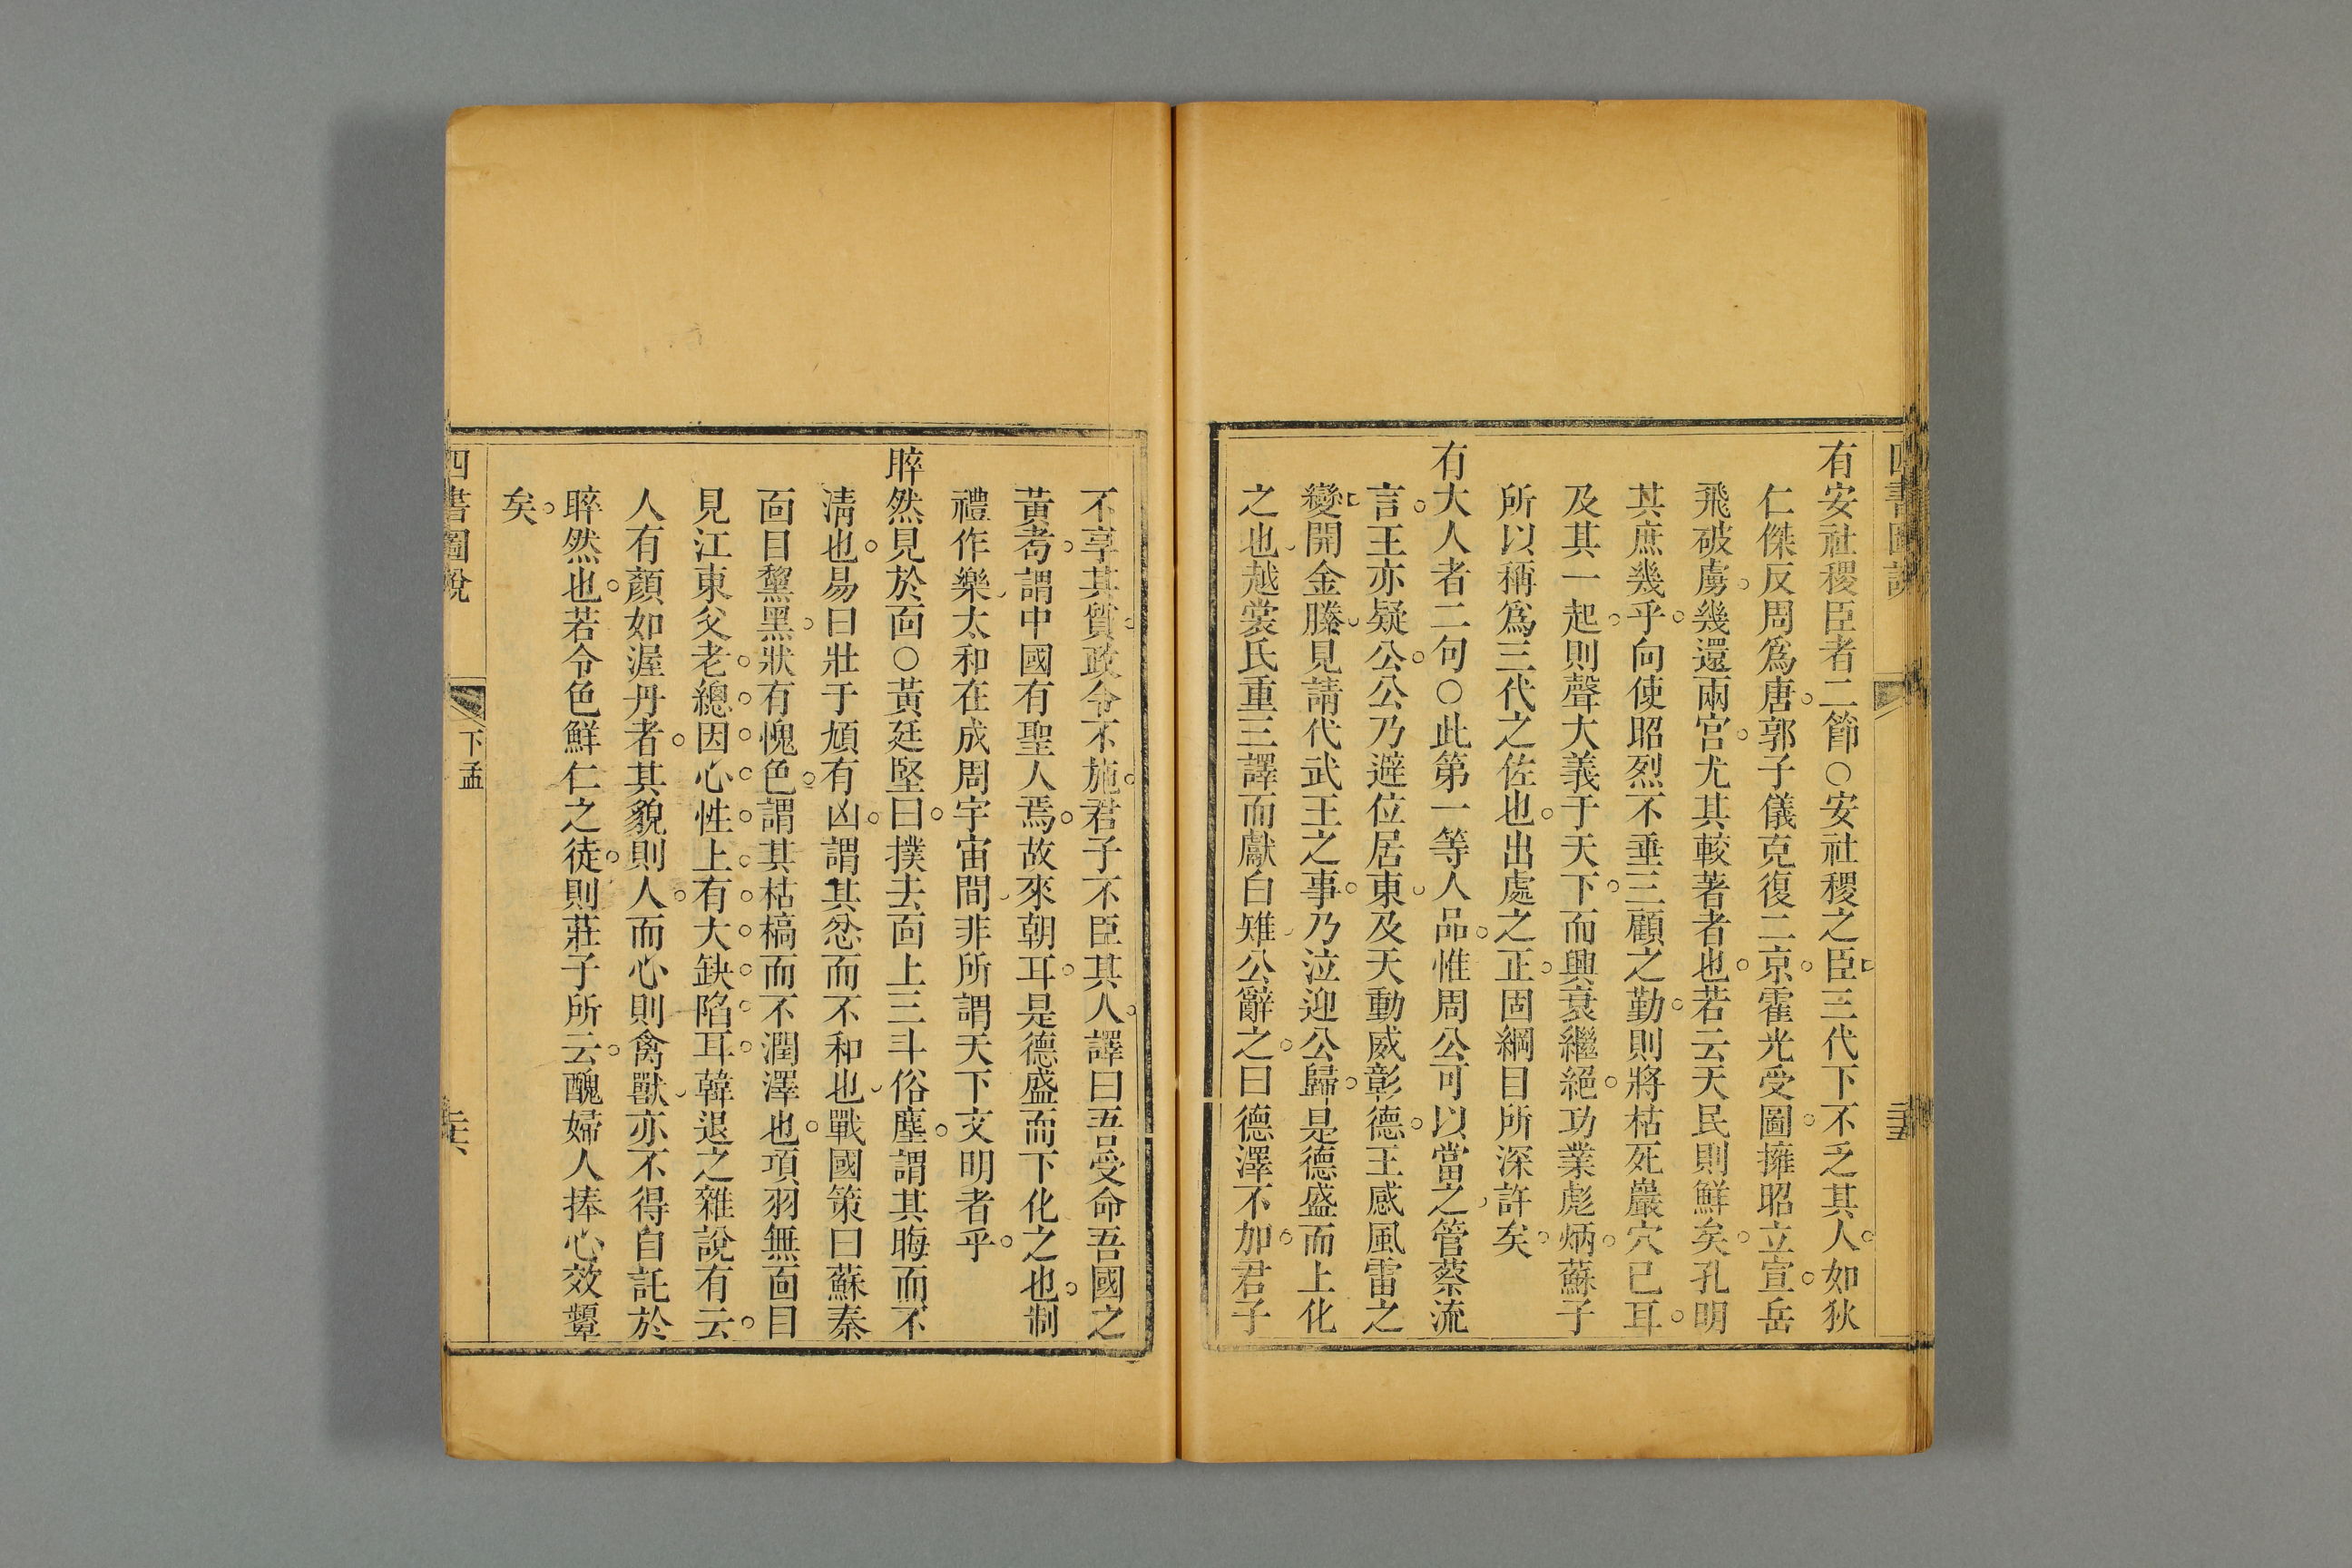 四書圖說
三十五
有安社稷臣者二節○安社稷之臣三代下不乏其人如狄
仁傑反周爲唐郭子儀克復二京霍光受圖擁昭立宣岳
飛破虜幾還兩宮尤其較著者也若云天民則鮮矣孔明
其庶幾乎向使昭烈不垂三顧之勤則將枯死巖穴已耳
及其一起則聲大義于天下而興衰繼絕功業彪炳蘇子
所以稱爲三代之佐也出處之正固綱目所深許矣
有大人者二句○此第一等人品惟周公可以當之管蔡流
言王亦疑公公乃避位居東及天動威彰德王感風雷之
變開金縢見請代武王之事乃泣迎公歸是德盛而上化
之也越裳氏重三譯而獻白雉公辭之曰德澤不加君子
不享其質政令不施君子不臣其人譯曰吾受命吾國之
黃耇謂中國有聖人焉故來朝耳是德盛而下化之也制
禮作樂太和在成周宇宙間非所謂天下文明者乎
睟然見於面○黃廷堅曰撲去面上三斗俗塵謂其晦而不
清也易曰壯于頄有凶謂其忿而不和也戰國策曰蘇秦
面目黧黑狀有愧色謂其枯槁而不潤澤也項羽無面目
見江東父老總因心性上有大缺陷耳韓退之雜說有云
人有顏如渥丹者其貌則人而心則禽獸亦不得自託於
睟然也若令色鮮仁之徒則莊子所云醜婦人捧心效顰
矣
四書圖說
下孟
三十六